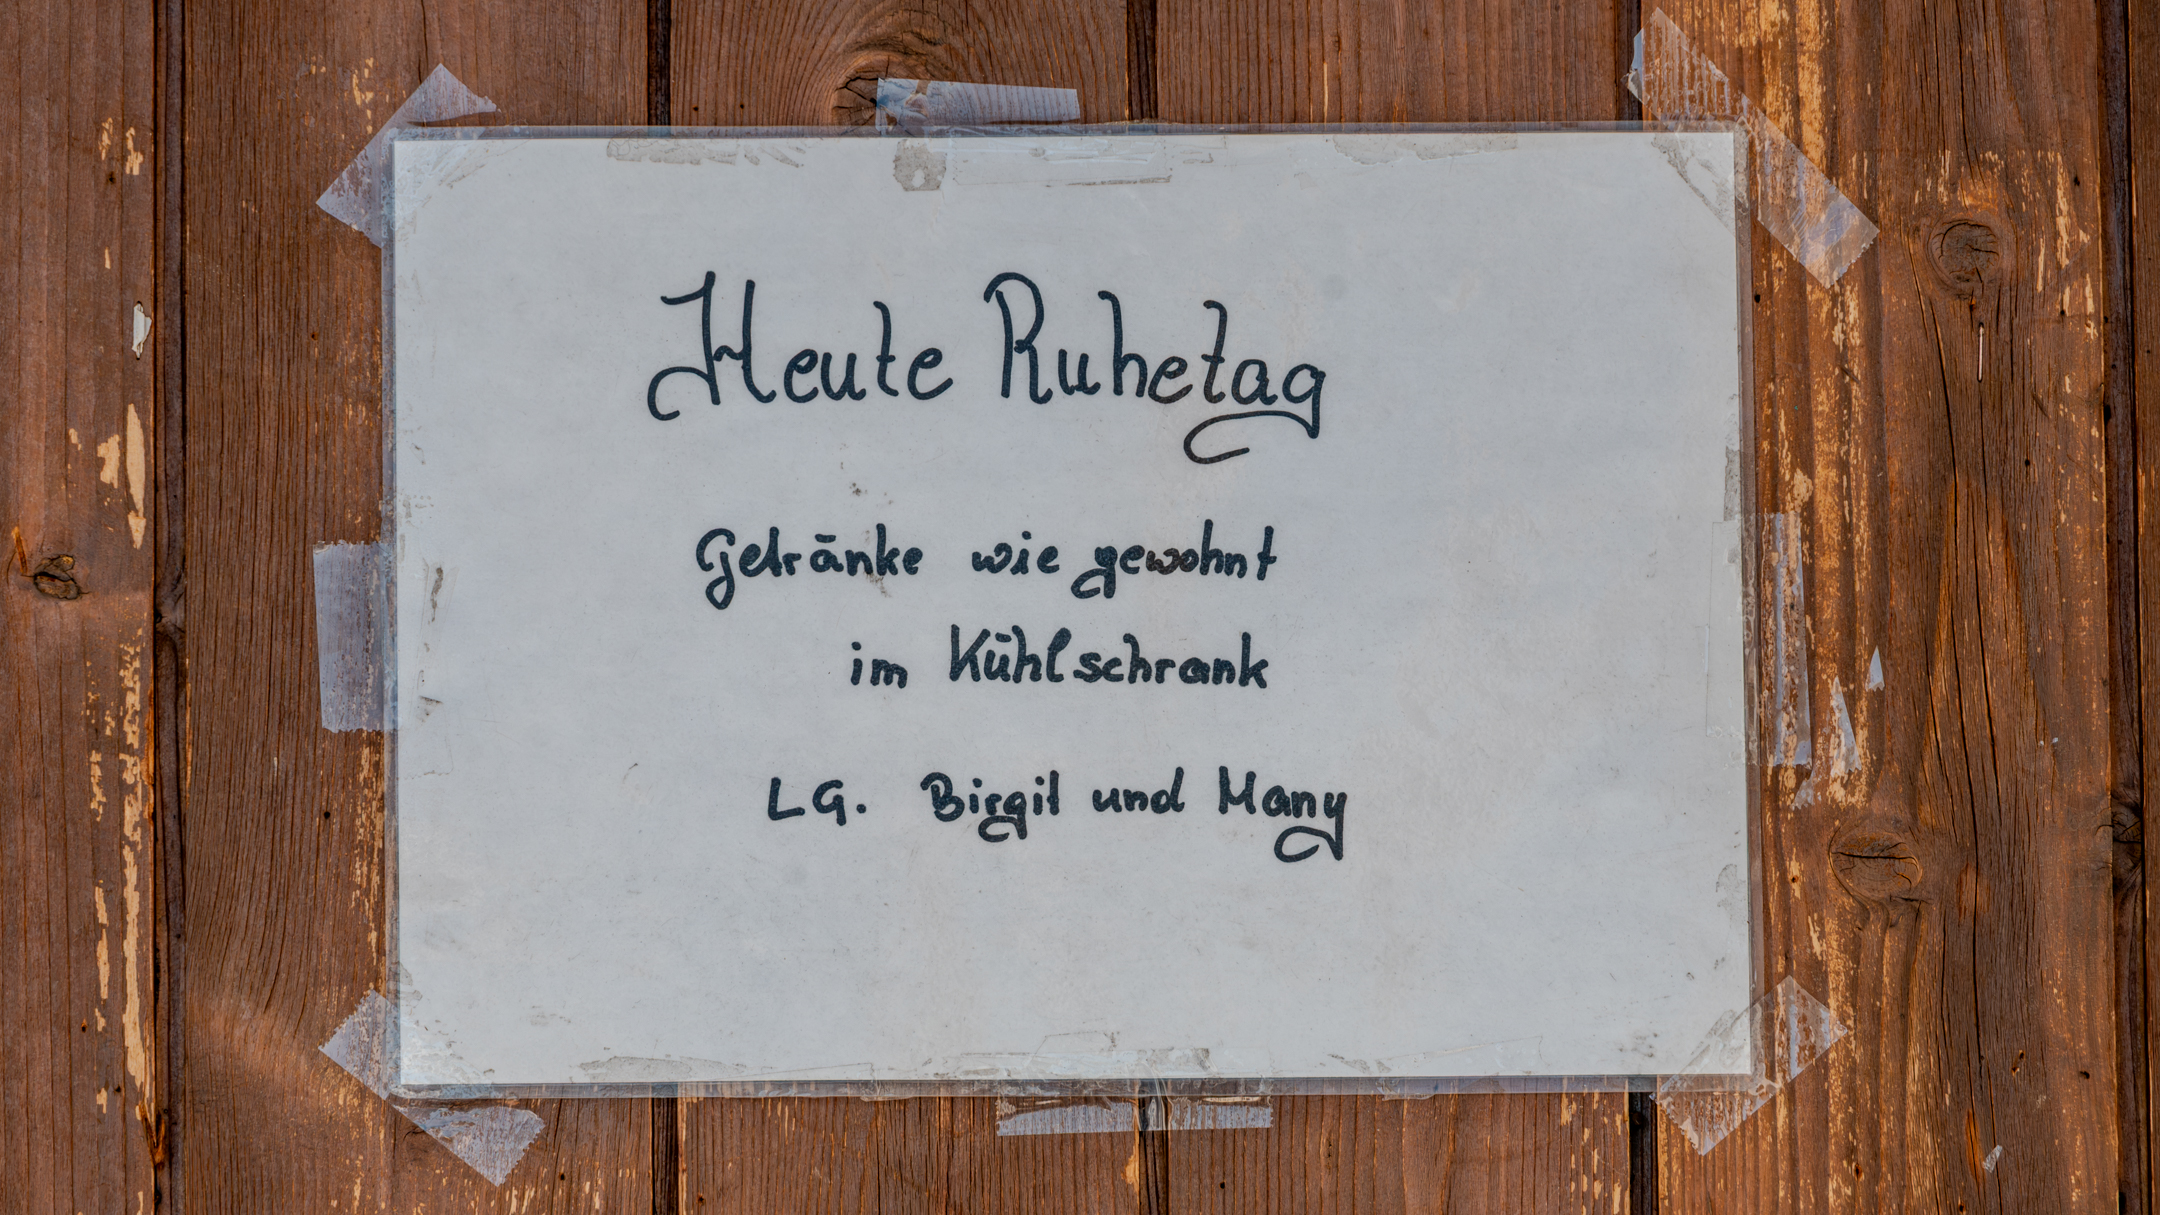 Heute Ruhetag
Getränke wie gewohnt
im Kühlschrank
LG. Birgit und Many